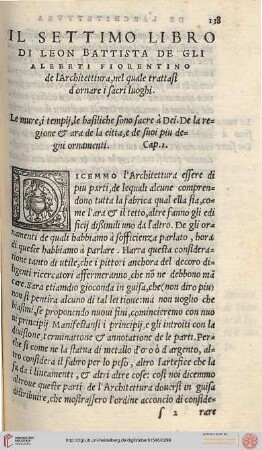 138
IL SETTIMO LIBRO
DI LEON BATTISTA DE GLI
ALBERTI FIORENTINO
de l'Architettura, nel quale trattasi
d'ornare i sacri luoghi.
Le mure, i tempij, le basiliche sono sacre à Dei. De la re
gione & ara de la citta, e de suoi piu de-
gni ornamenti. Cap.1.
DICEMMO l'Architettura essere di
piu parti, de lequali alcune compren-
dono tutta la fabrica qual ella sia, co-
me l'ara & il tetto, altre fanno gli edi
ficij dissimili uno da l'altro. De gli or-
namenti de quali habbiamo à sofficienza parlato, hora
di queste habbiamo à parlare. Harra questa considera-
tione tanto di utile, che i pittori anchora del decoro di-
ligenti ricercatori affermeranno, che nõ ne debbono mã
care. Sara etiamdio gioconda in guisa, che (non diro piu)
non si pentira alcuno di tal lettione: ma non uoglio che
biasimi, se proponendo nuoui fini, cominceremo con nuo
ui principij. Manifestansi i principij, e gli introiti con la
diuisione, terminatione & annotatione de le parti. Per-
che si come ne la statua di metallo d'oro ò d'argento, al-
tro considera il fabro per lo peso, altro l'artefice che la
fa i liniamenti, & altri altre cose: così noi dicemmo
altroue queste parti de l'Architettura douersi in guisa
distribuire, che mostrassero l'ordine assai accommodato
s 2 rare
http://digi.ub.uni-heidelberg.de/diglit/alberti1546/0289